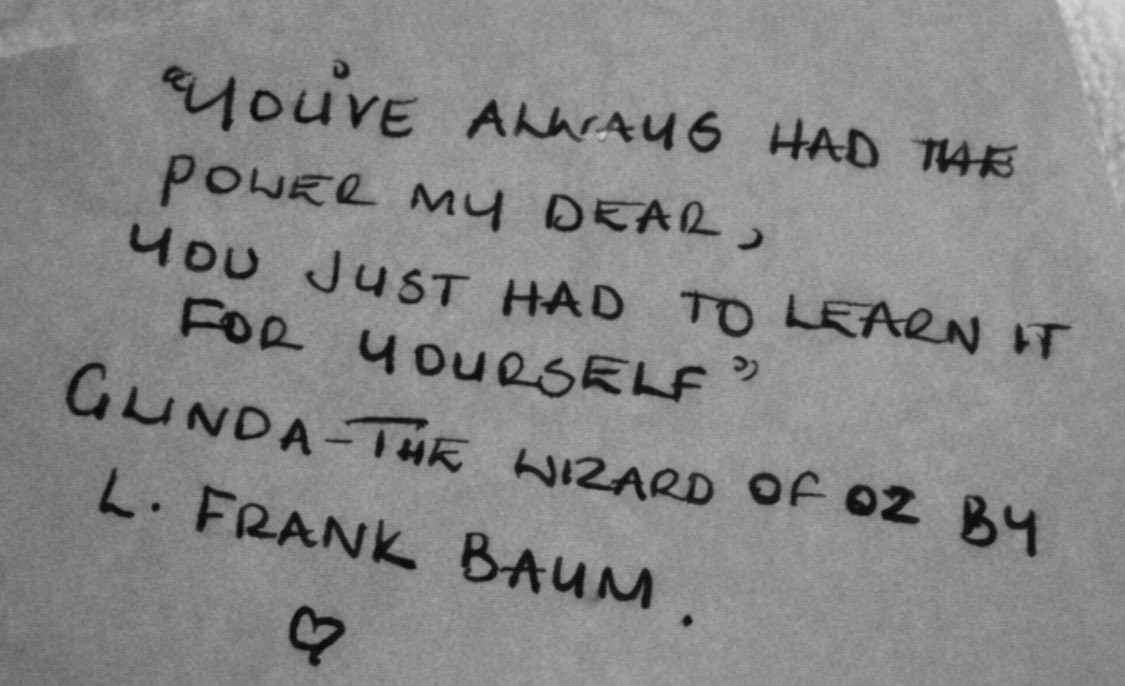 "YOU'VE ALWAYS HAD THE
POWER MY DEAR,
YOU JUST HAD TO LEARN IT
FOR YOURSELF"
GLINDA-THE WIZARD OF OZ BY
L. FRANK BAUM.
♡